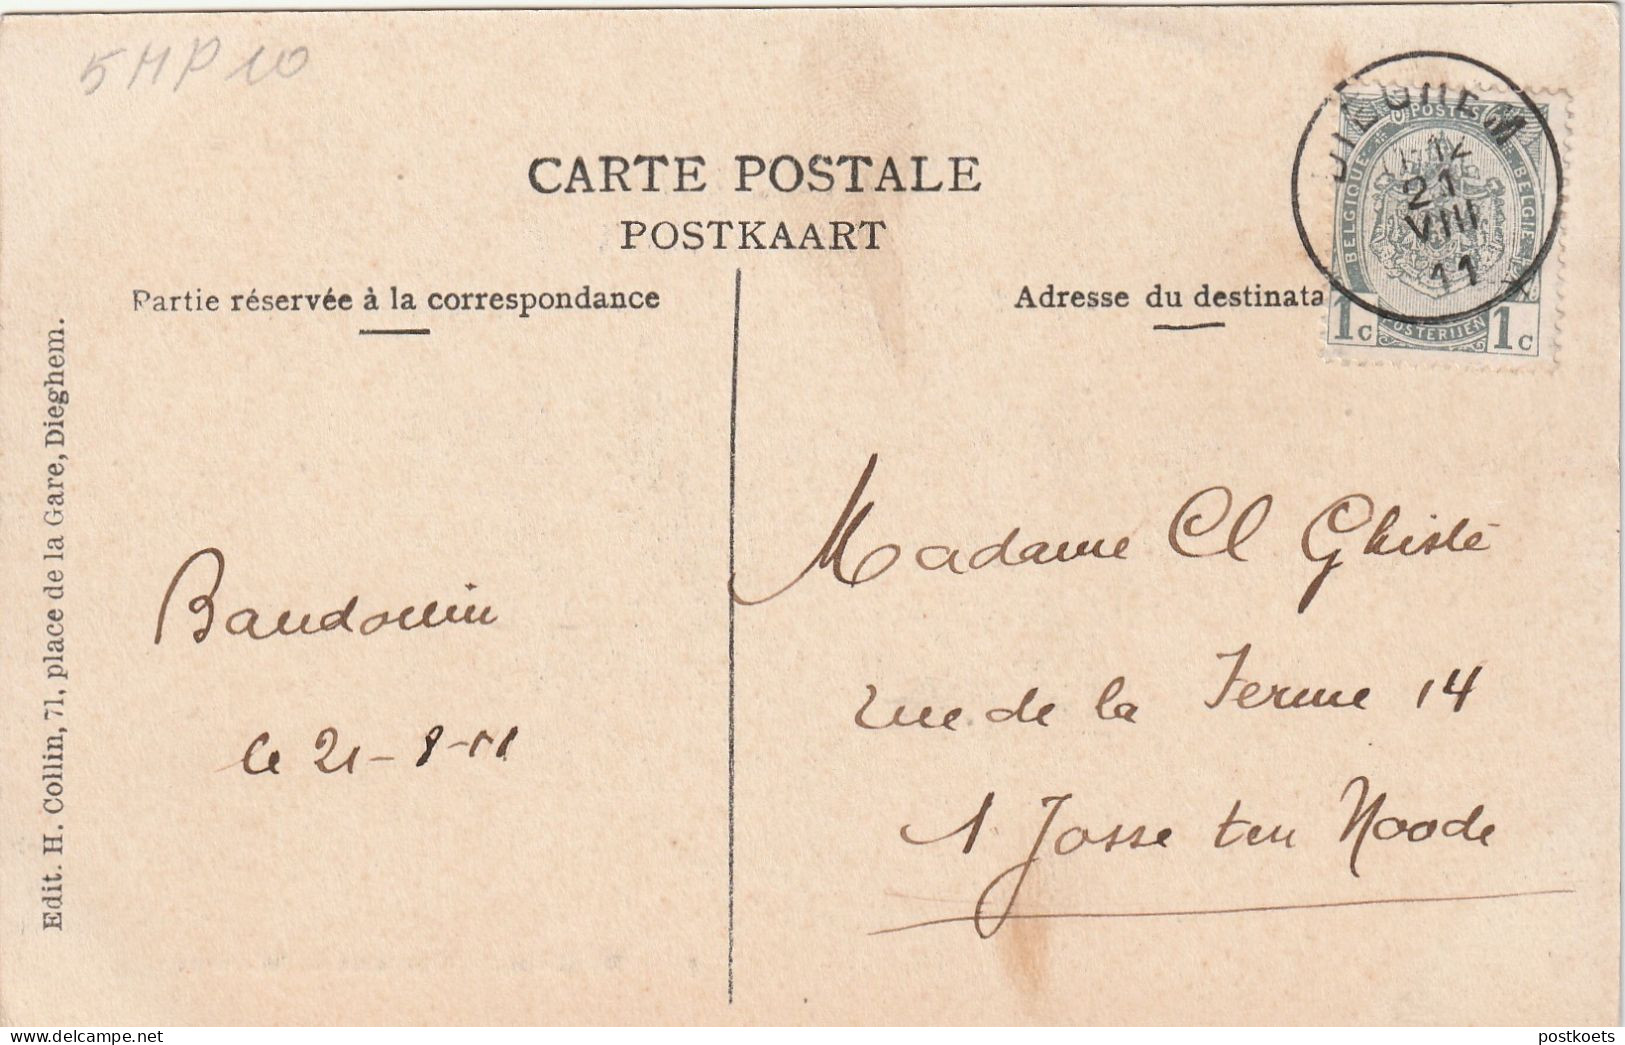 5MP10
CARTE POSTALE
POSTKAART
Partie réservée à la correspondance
Adresse du destinata
DIEGHEM
12
21
VIII
11
POSTES
BELGIQUE
BELGIE
POSTERIJEN
1c 1c
Edit. H. Collin, 71, place de la Gare, Dieghem.
Baudouin
le 21-8-11
Madame Cl Ghislé
rue de la Ferme 14
Josse ten Noode
postkoets